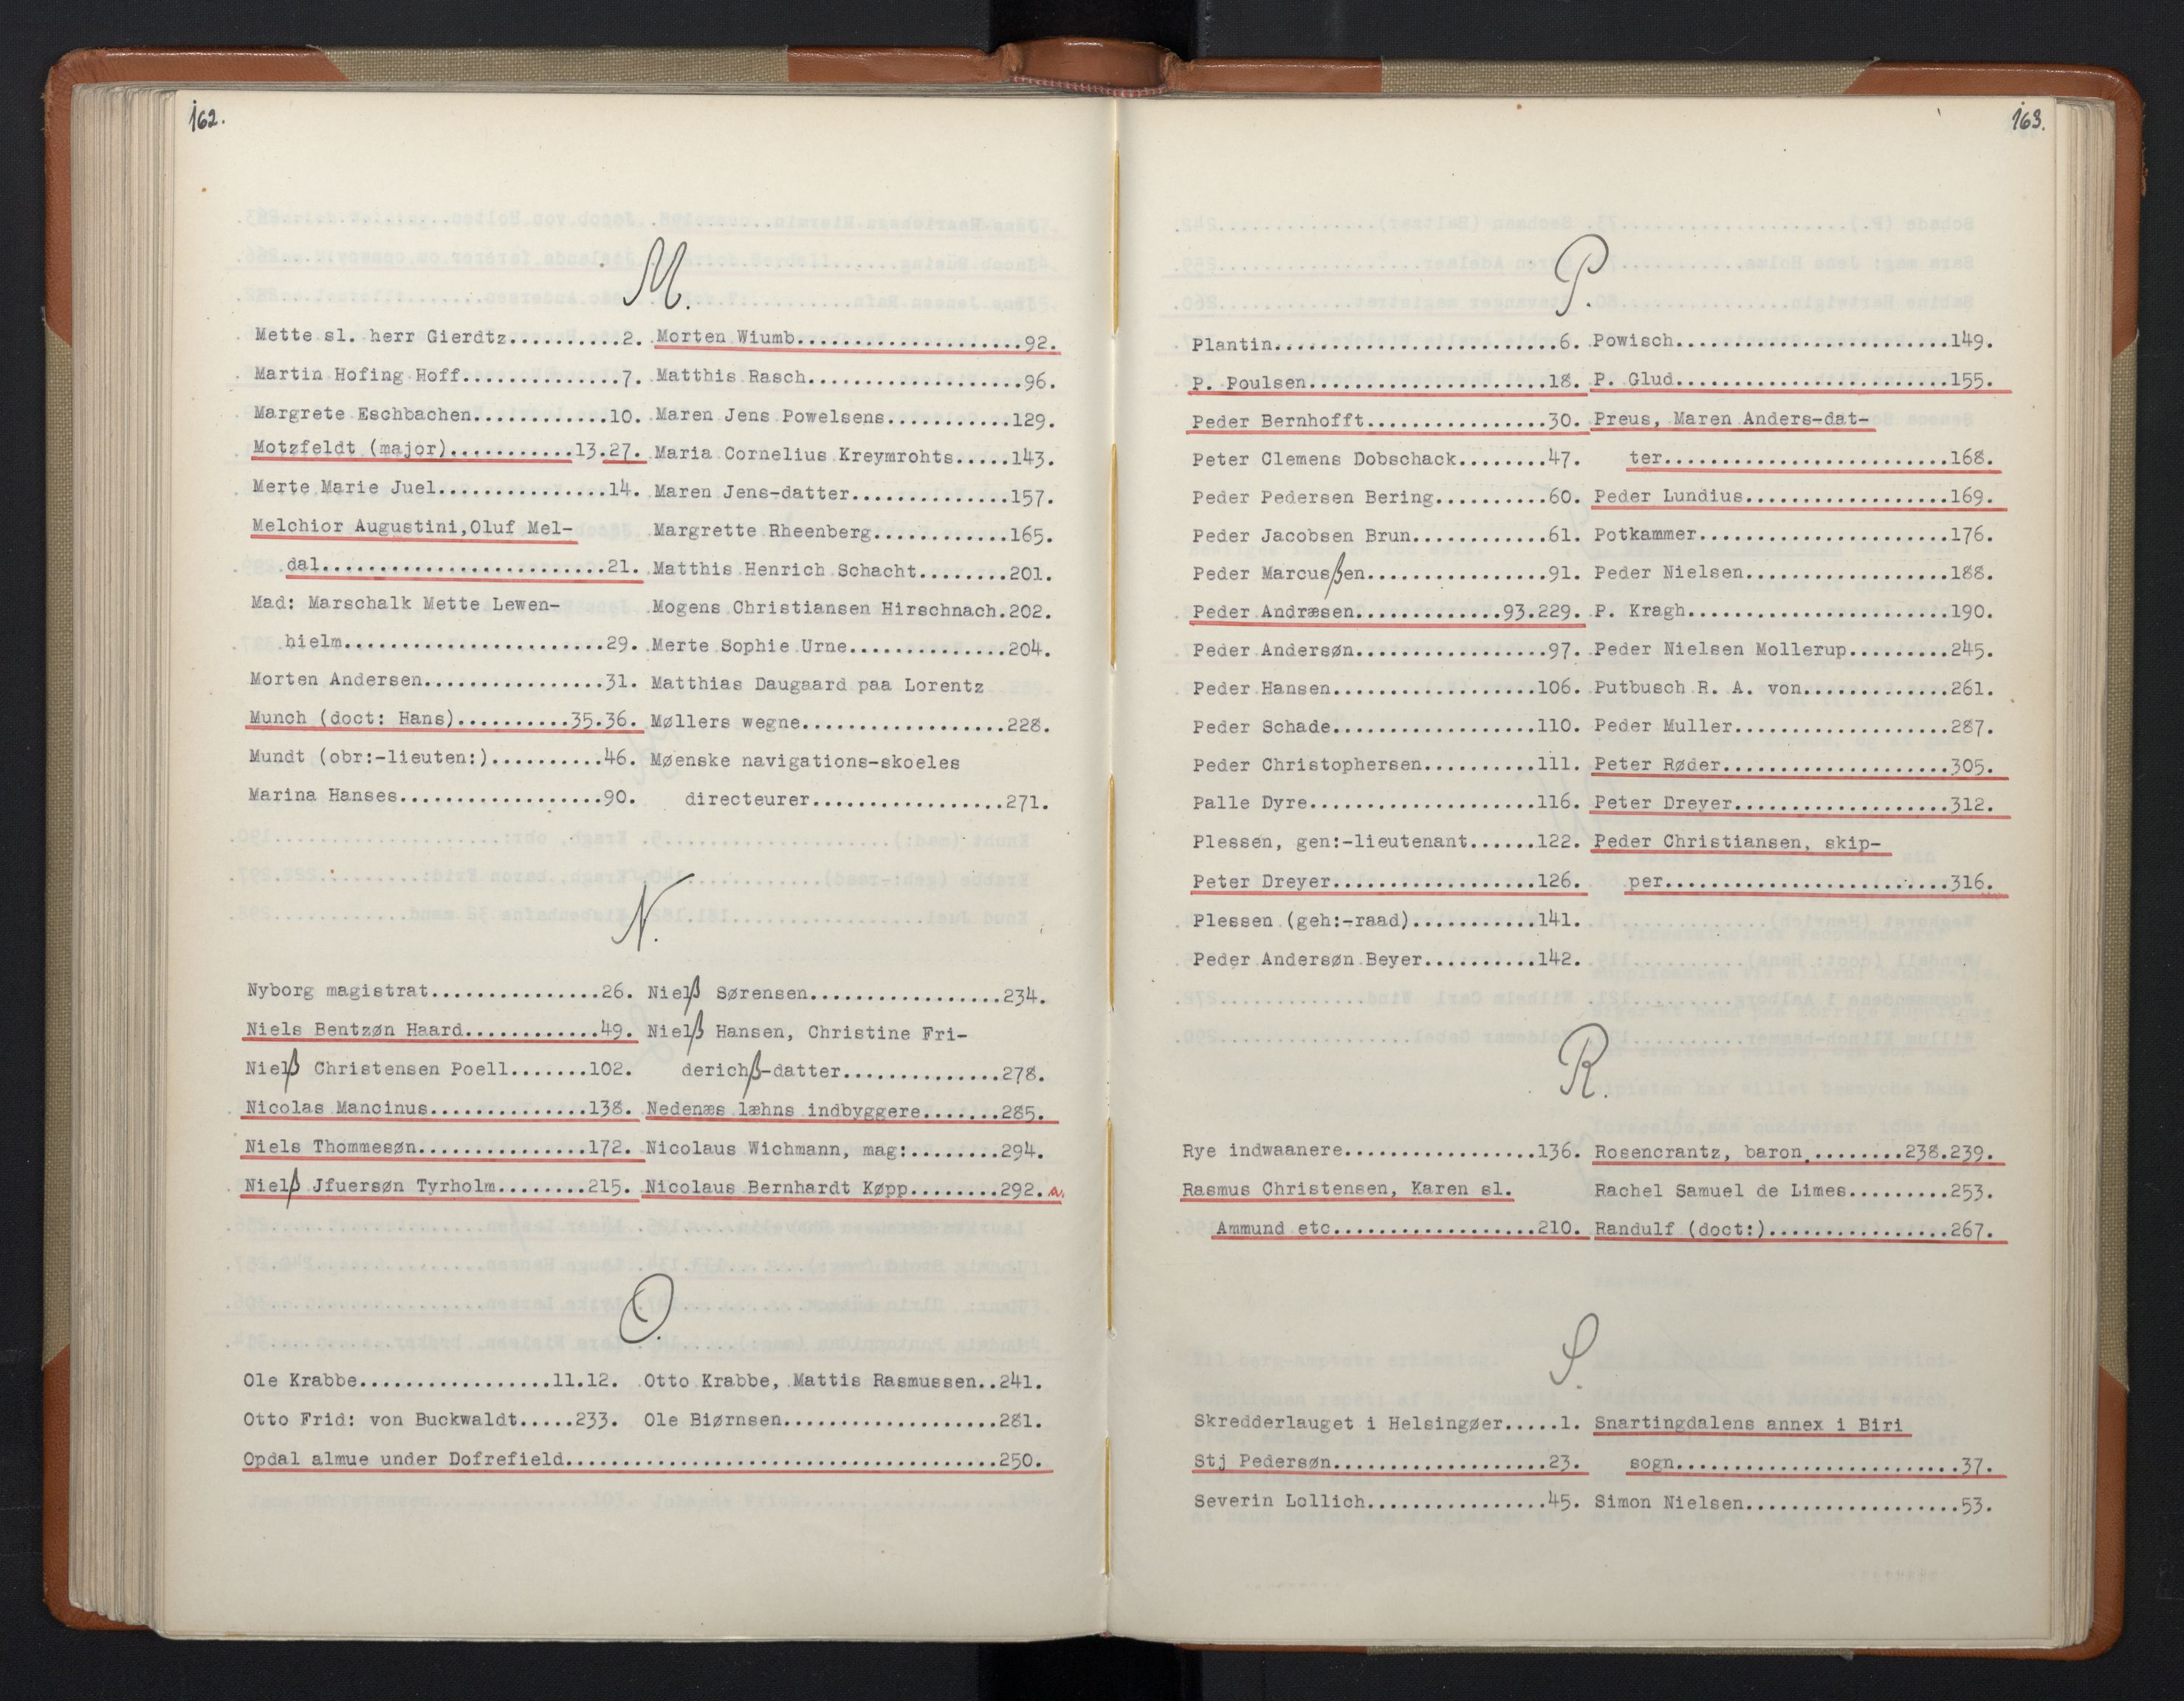 162.
M.
Mette sl. herr Gierdtz..........2.
Martin Hofing Hoff..............7.
Margrete Eschbachen............10.
Motzfeldt (major)...........13.27.
Merte Marie Juel...............14.
Melchior Augustini,Oluf Mel-
dal.........................21.
Mad: Marschalk Mette Lewen-
hielm.......................29.
Morten Andersen................31.
Munch (doct: Hans)..........35.36.
Mundt (obr:-lieuten:)..........46.
Marina Hanses..................90.
Morten Wiumb....................92.
Matthis Rasch...................96.
Maren Jens Powelsens...........129.
Maria Cornelius Kreymrohts.....143.
Maren Jens-datter..............157.
Margrette Rheenberg............165.
Matthis Henrich Schacht........201.
Mogens Christiansen Hirschnach.202.
Merte Sophie Urne..............204.
Matthias Daugaard paa Lorentz
Møllers wegne..................228.
Møenske navigations-skoeles
directeurer.................271.
N.
Nyborg magistrat...............26.
Niels Bentzøn Haard............49.
Nielß Christensen Poell.......102.
Nicolas Mancinus..............138.
Niels Thommesøn...............172.
Nielß Jfuersøn Tyrholm........215.
Nielß Sørensen.................234.
Nielß Hansen, Christine Fri-
derichß-datter..............278.
Nedenæs læhns indbyggere.......285.
Nicolaus Wichmann, mag:........294.
Nicolaus Bernhardt Køpp........292. a.
O.
Ole Krabbe.................11.12.
Otto Frid: von Buckwaldt.....233.
Otto Krabbe, Mattis Rasmussen..241.
Ole Biørnsen...................281.
Opdal almue under Dofrefield......................................250.
163.
P.
Plantin.........................6.
P. Poulsen.....................18.
Peder Bernhofft................30.
Peter Clemens Dobschack........47.
Peder Pedersen Bering..........60.
Peder Jacobsen Brun............61.
Peder Marcusßen................91.
Peder Andræsen.............93.229.
Peder Andersøn.................97.
Peder Hansen..................106.
Peder Schade..................110.
Peder Christophersen..........111.
Palle Dyre....................116.
Plessen, gen:-lieutenant......122.
Peter Dreyer..................126.
Plessen (geh:-raad)...........141.
Peder Andersøn Beyer..........142.
Powisch........................149.
P. Glud........................155.
Preus, Maren Anders-dat-
ter.........................168.
Peder Lundius..................169.
Potkammer......................176.
Peder Nielsen..................188.
P. Kragh.......................190.
Peder Nielsen Mollerup.........245.
Putbusch R. A. von.............261.
Peder Muller...................287.
Peter Røder....................305.
Peter Dreyer...................312.
Peder Christiansen, skip-
per.........................316.
R.
Rye indwaanere.................136.
Rasmus Christensen, Karen sl.
Ammund etc..................210.
Rosencrantz, baron.........238.239.
Rachel Samuel de Limes.........253.
Randulf (doct:)................267.
S.
Skredderlauget i Helsingøer.....1.
Stj Pedersøn...................23.
Severin Lollich................45.
Snartingdalens annex i Biri
sogn.........................37.
Simon Nielsen...................53.